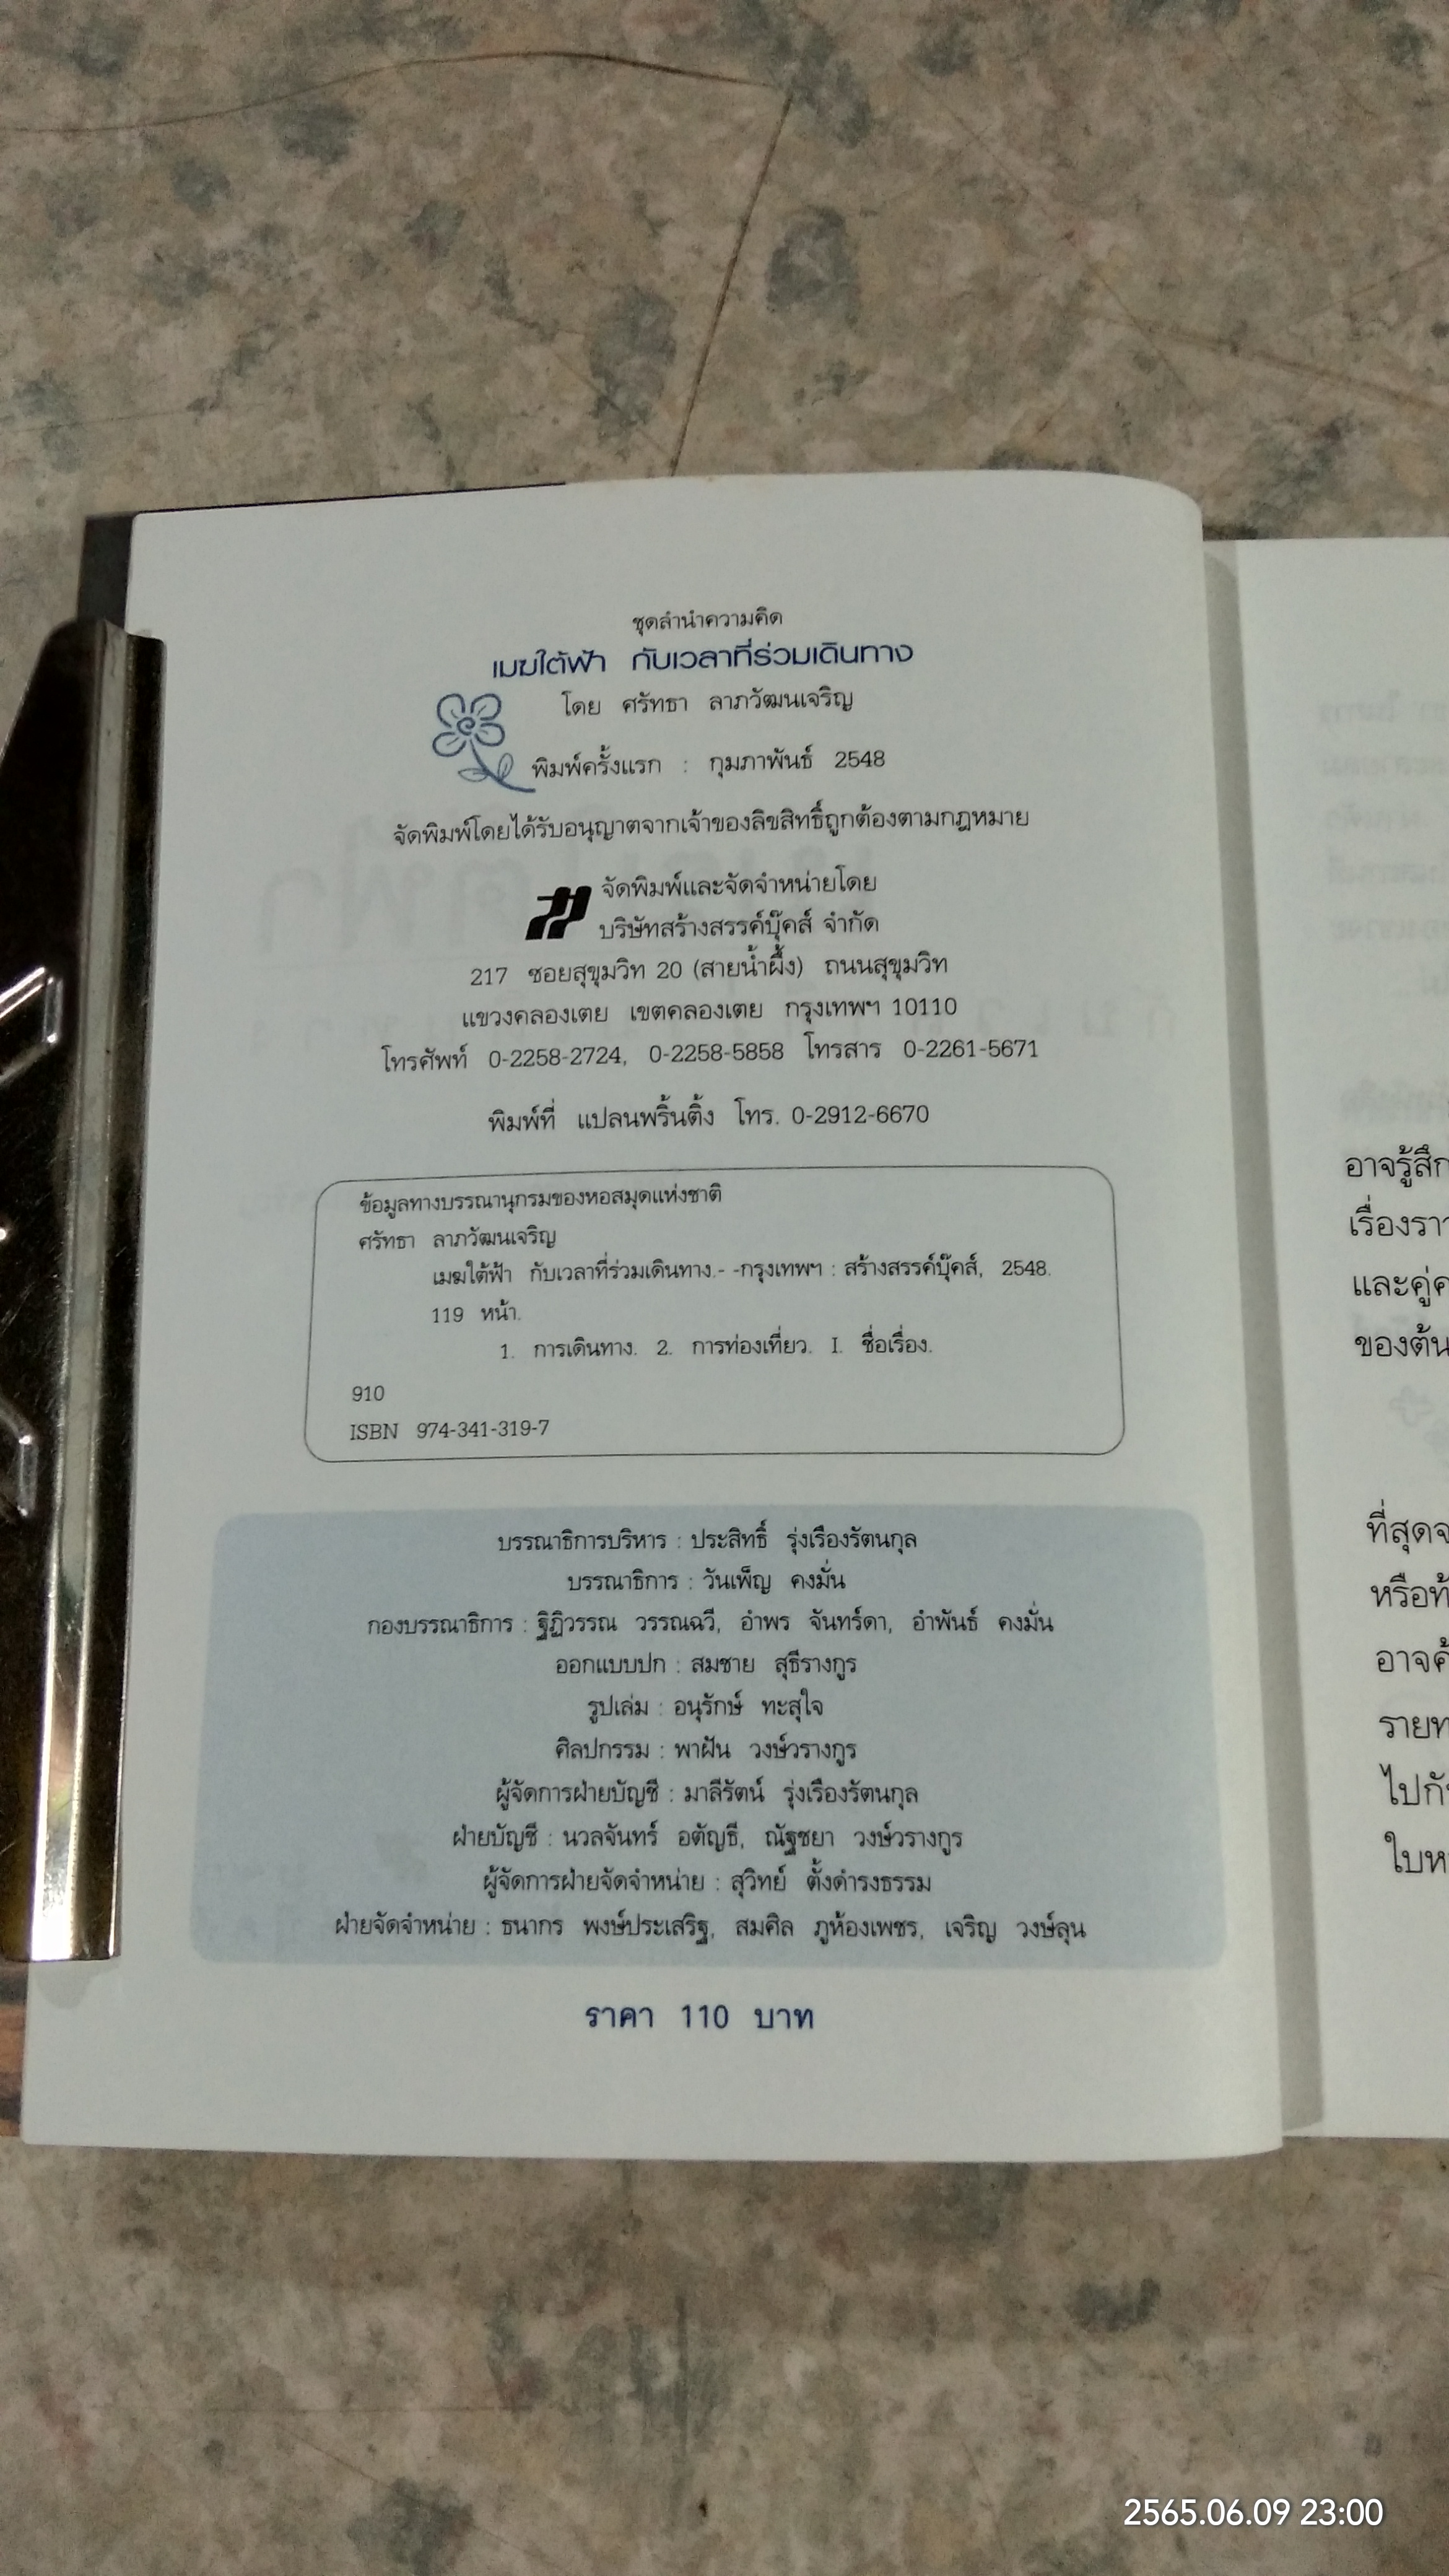 ชุดลำนำความคิด
เมฆใต้ฟ้า กับเวลาที่ร่วมเดินทาง
โดย ศรัทธา ลาภวัฒนเจริญ
พิมพ์ครั้งแรก : กุมภาพันธ์ 2548
จัดพิมพ์โดยได้รับอนุญาตจากเจ้าของลิขสิทธิ์ถูกต้องตามกฎหมาย
จัดพิมพ์และจัดจำหน่ายโดย
บริษัทสร้างสรรค์บุ๊คส์ จำกัด
217 ซอยสุขุมวิท 20 (สายน้ำผึ้ง) ถนนสุขุมวิท
แขวงคลองเตย เขตคลองเตย กรุงเทพฯ 10110
โทรศัพท์ 0-2258-2724, 0-2258-5858 โทรสาร 0-2261-5671
พิมพ์ที่ แปลนพริ้นติ้ง โทร. 0-2912-6670
ข้อมูลทางบรรณานุกรมของหอสมุดแห่งชาติ
ศรัทธา ลาภวัฒนเจริญ
เมฆใต้ฟ้า กับเวลาที่ร่วมเดินทาง.- -กรุงเทพฯ : สร้างสรรค์บุ๊คส์, 2548.
119 หน้า.
1. การเดินทาง. 2. การท่องเที่ยว. I. ชื่อเรื่อง.
910
ISBN 974-341-319-7
บรรณาธิการบริหาร : ประสิทธิ์ รุ่งเรืองรัตนกุล
บรรณาธิการ : วันเพ็ญ คงมั่น
กองบรรณาธิการ : ฐิฏิวรรณ วรรณฉวี, อำพร จันทร์ดา, อำพันธ์ คงมั่น
ออกแบบปก : สมชาย สุธีรางกูร
รูปเล่ม : อนุรักษ์ ทะสุใจ
ศิลปกรรม : พาฝัน วงษ์วรางกูร
ผู้จัดการฝ่ายบัญชี : มาลีรัตน์ รุ่งเรืองรัตนกุล
ฝ่ายบัญชี : นวลจันทร์ อตัญธี, ณัฐชยา วงษ์วรางกูร
ผู้จัดการฝ่ายจัดจำหน่าย : สุวิทย์ ตั้งดำรงธรรม
ฝ่ายจัดจำหน่าย : ธนากร พงษ์ประเสริฐ, สมศิล ภูห้องเพชร, เจริญ วงษ์ลุน
ราคา 110 บาท
อาจรู้สึก
เรื่องรา
และคู่ค
ของต้น
ที่สุดจ
หรือท้
อาจค้
รายท
ไปกั
ใบห
2565.06.09 23:00